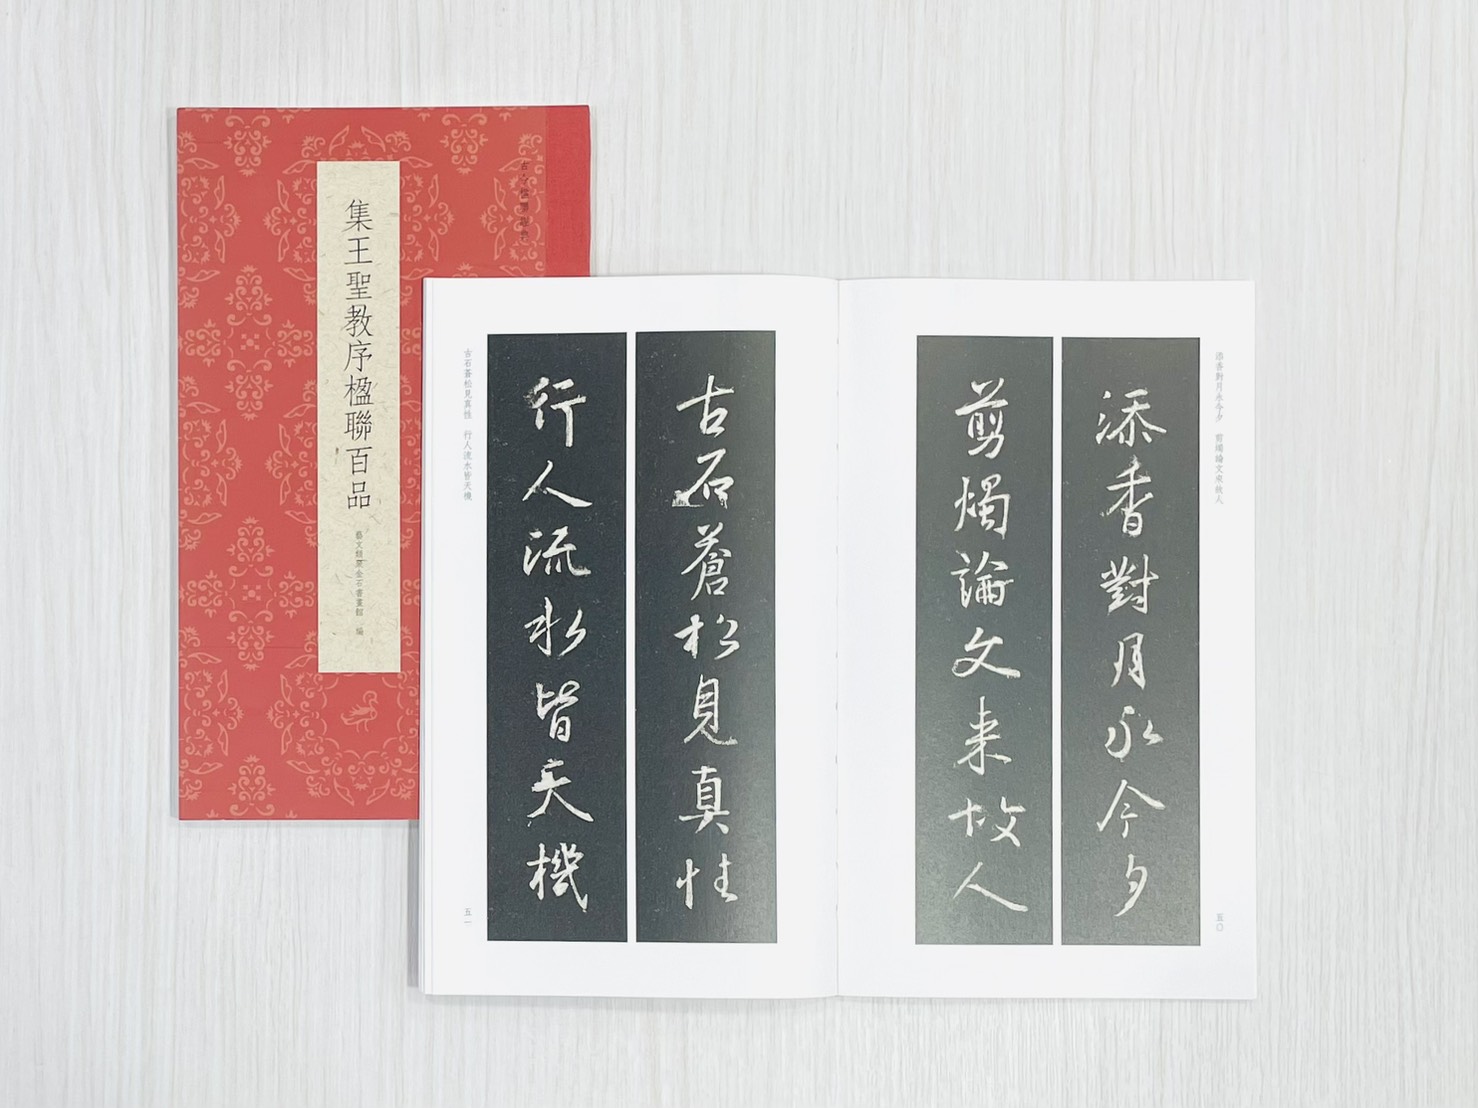 集王聖教序楹聯百品
藝文類聚金石書畫館 編
添香對月永今夕 剪燭論文來故人
添香對月永今夕
剪燭論文来故人
五〇
古石蒼松見真性
行人流水皆天機
古石蒼松見真性 行人流水皆天機
五一